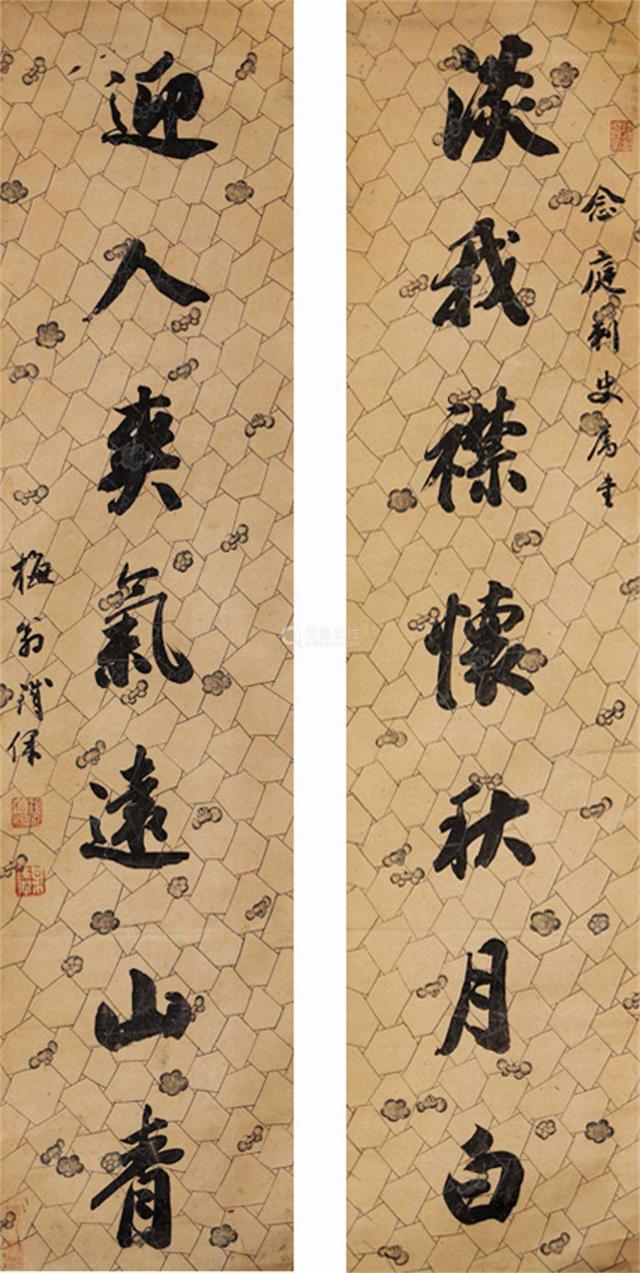 念庭刺史屬書
淡我襟懷秋月白
迎人爽氣遠山青
梅翁鐵保